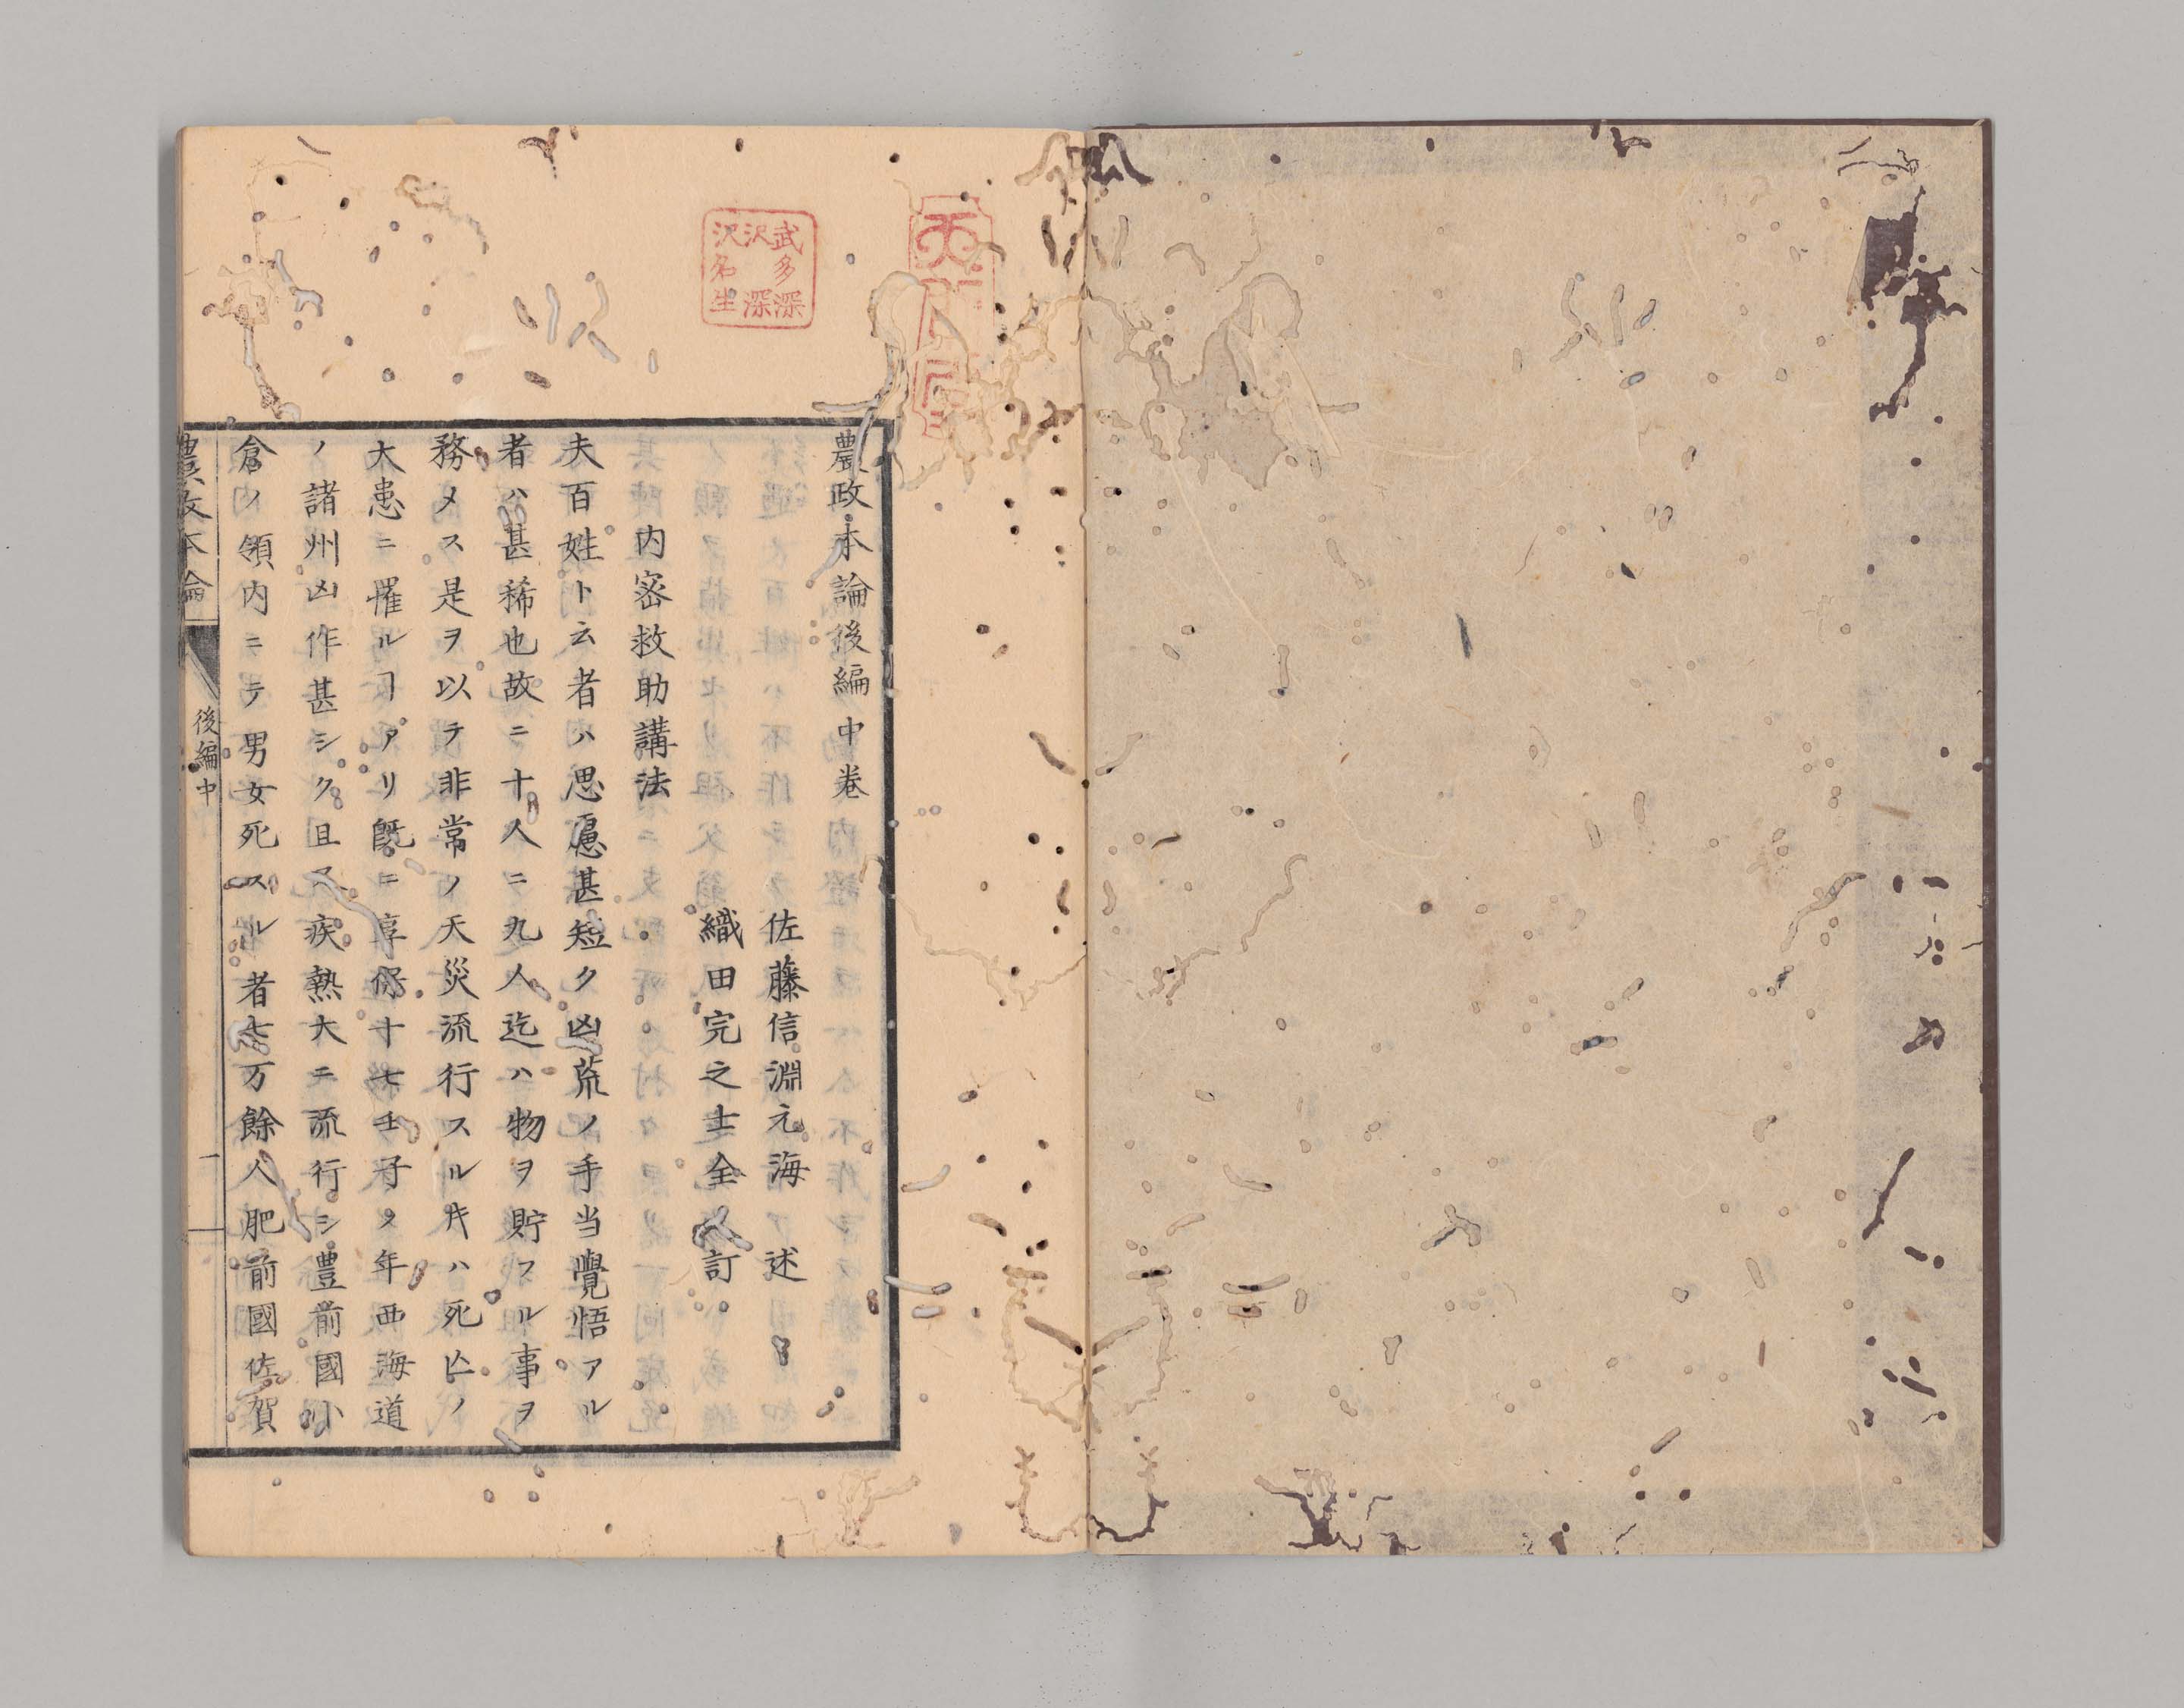 農政本論後編中巻
佐藤信淵元海 述
織田完之士全 訂
内密救助講法
夫百姓ト云者ハ思慮甚短ク凶荒ノ手当覺悟アル
者ハ甚稀也故ニ十人ニ九人迄ハ物ヲ貯フル事ヲ
務メス是ヲ以テ非常ノ天災流行スル𪜈ハ死亡ノ
大患ニ罹ルヿアリ既ニ享保十七壬子ノ年西海道
ノ諸州凶作甚シク且又疾熱大ニ流行シ豊前國小
倉ノ領内ニテ男女死スル者七万餘人肥前國佐賀
農政本論
後編中
一
武多深
沢深
沢名生